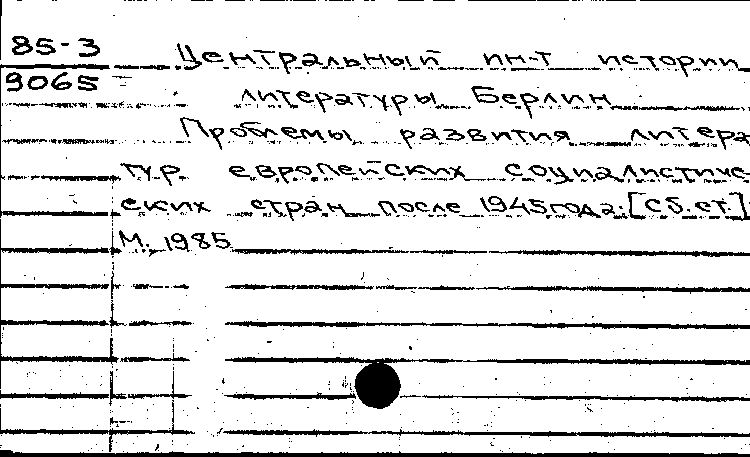 85-3
9065
Центральный ин-т истории
литературы Берлин
Проблемы развития литера
тур европейских социалистиче
ских стран после 1945 года: [Сб. ст.]
М. 1985